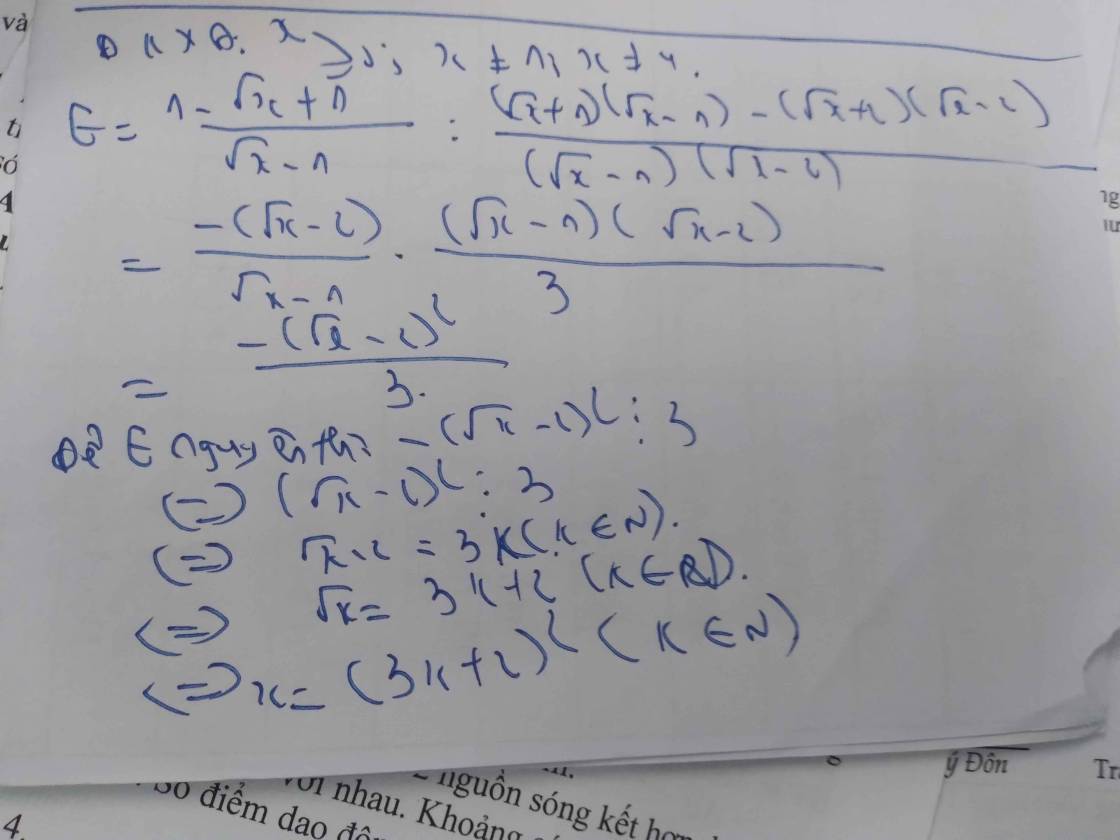 và
ĐKXĐ: x ≥ 0; x ≠ 1; x ≠ 4.
E = \frac{1 - √x + 1}{√x - 1} : \frac{(√x + 1)(√x - 1) - (√x + 2)(√x - 2)}{(√x - 1)(√x - 2)}
= \frac{-(√x - 2)}{√x - 1} . \frac{(√x - 1)(√x - 2)}{3}
= \frac{-(√x - 2)^2}{3.}
Để E nguyên thì -(√x - 2)^2 ⋮ 3
<=> (√x - 2)^2 ⋮ 3
<=> √x - 2 = 3k (k ∈ N).
<=> √x = 3k + 2 (k ∈ N).
<=> x = (3k + 2)^2 (k ∈ N)
ý Đôn
2 nguồn sóng kết hợp
với nhau. Khoảng
Số điểm dao
4.